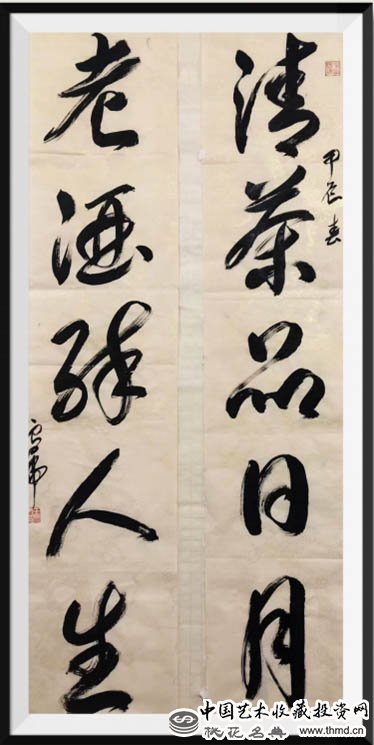 清茶品日月
甲辰春
老酒醉人生
中国艺术收藏投资网
桃花名典
www.thmd.cn